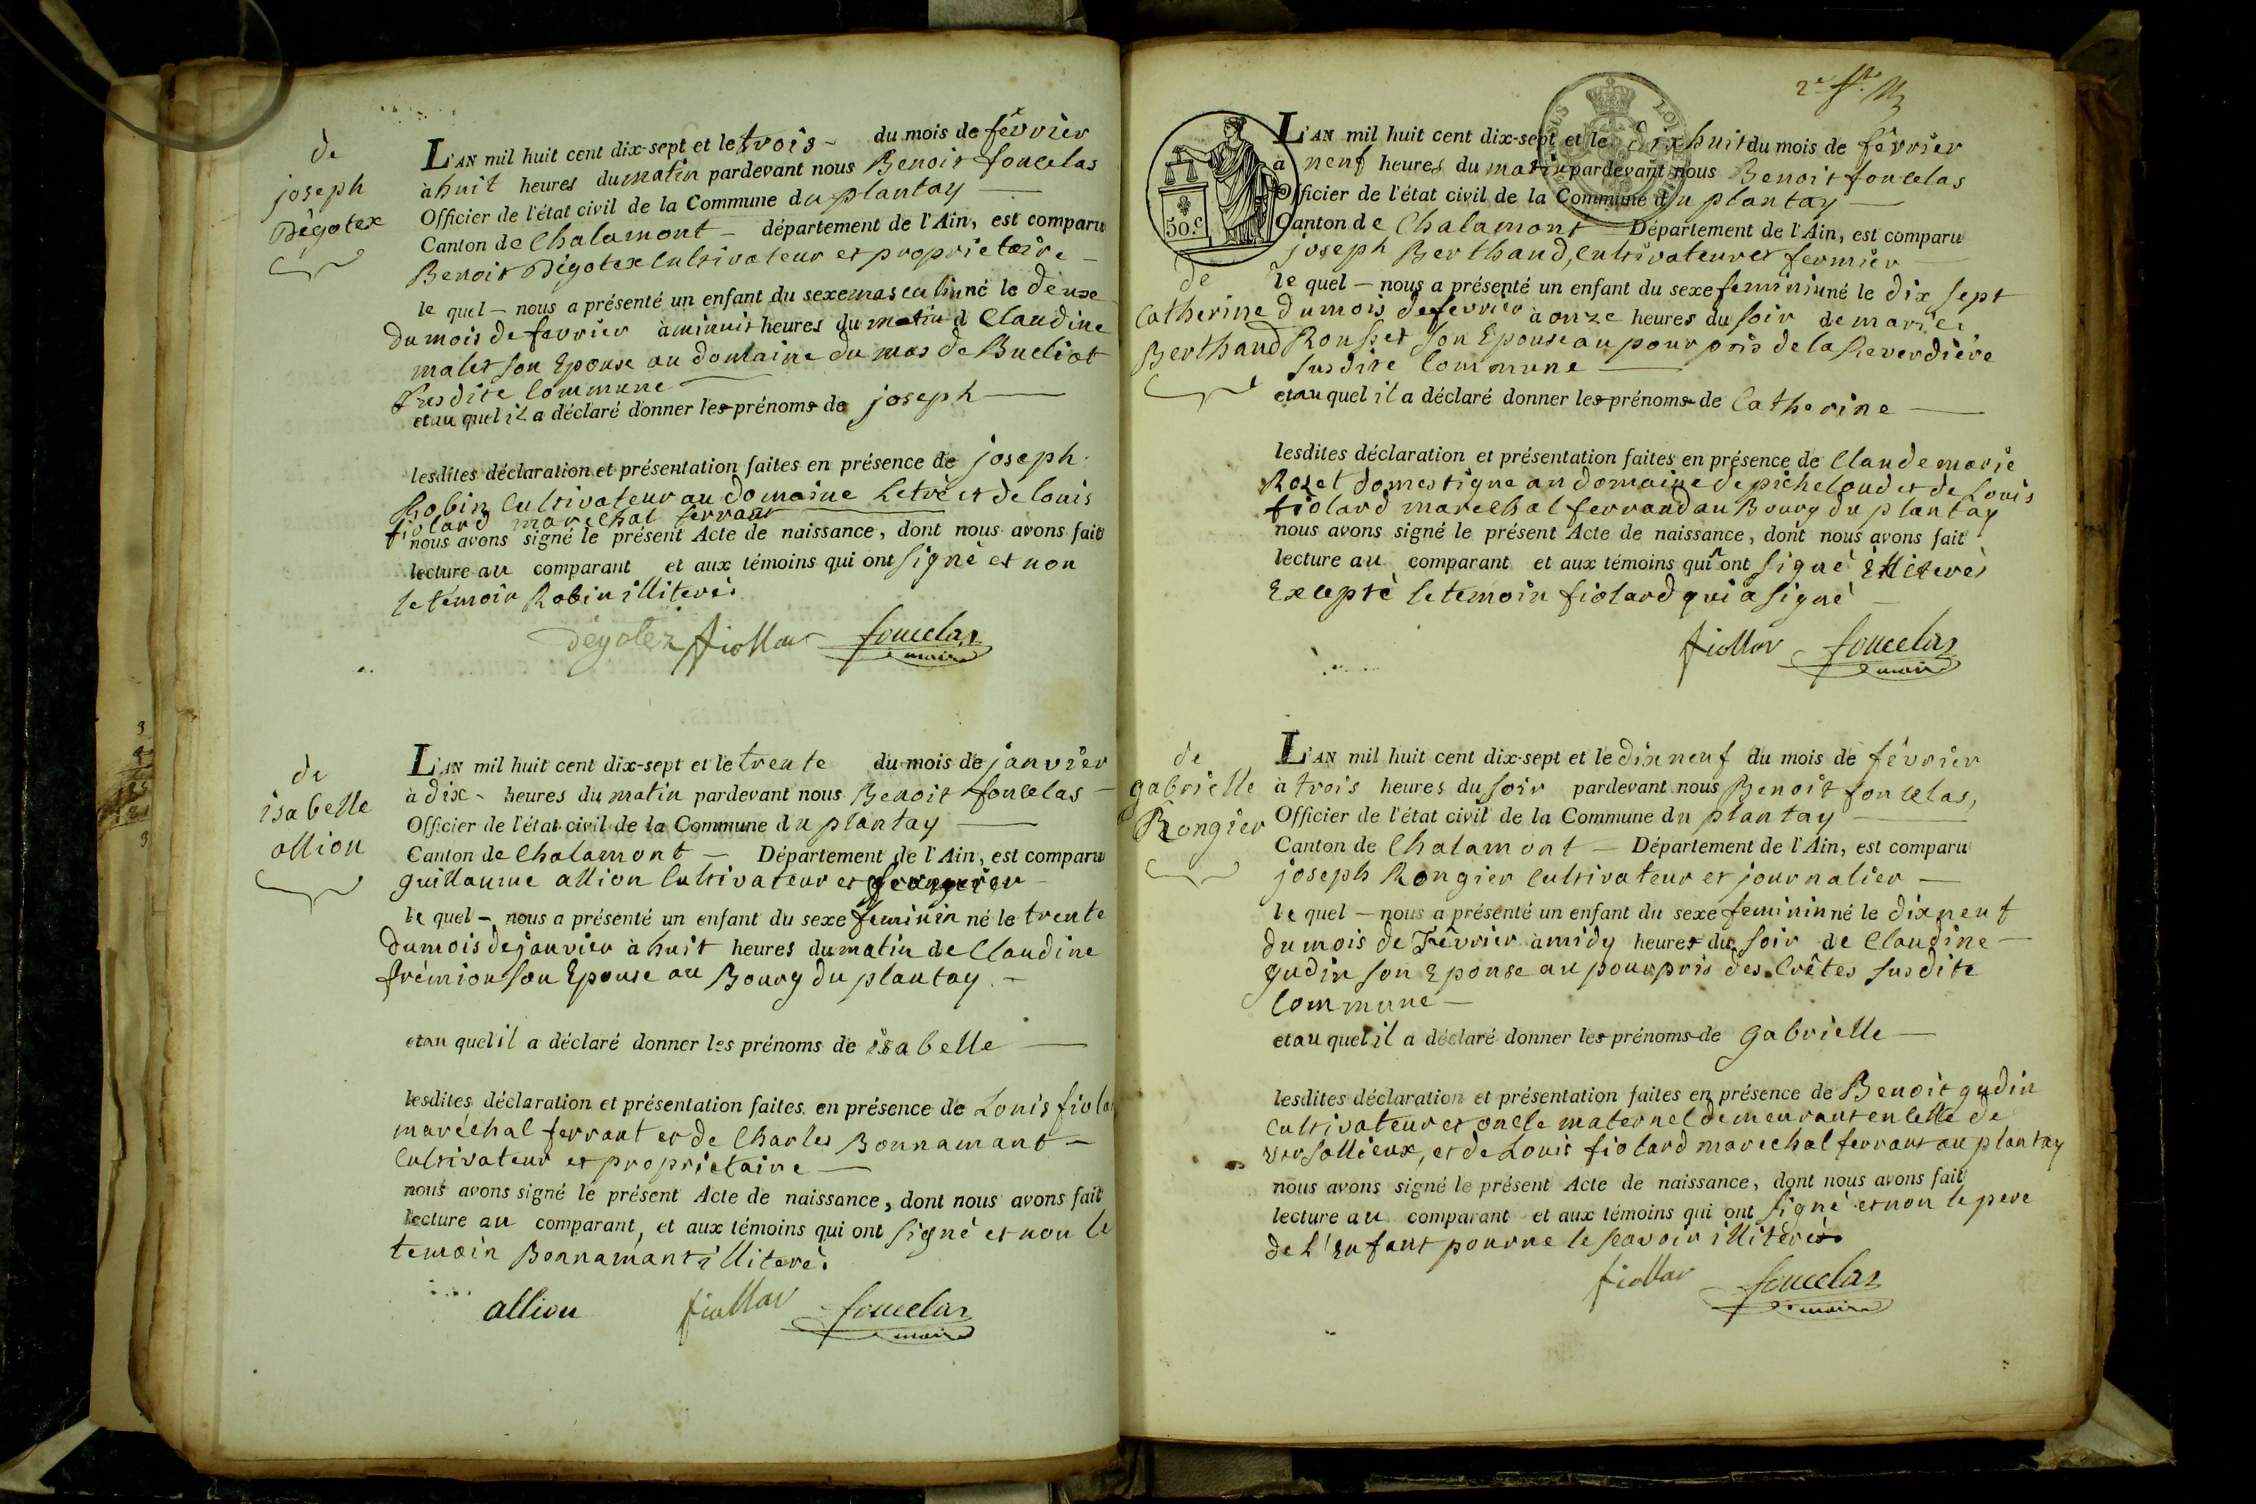 de
joseph
Dégotex
L'AN mil huit cent dix-sept et le trois - du mois de février
à huit heures du matin pardevant nous Benoit foucelas
Officier de l'état civil de la Commune du plantay
Canton de Chalamont - département de l'Ain, est comparu
Benoit Dégotex Cultivateur et proprietaire -
le quel - nous a présenté un enfant du sexe masculin né le deuxe
du mois de fevrier à minuit heures du matin d Claudine
malet son Epouse au domaine du mas de Bueliot
Susdite Commune
et au quel il a déclaré donner les prénoms de joseph
lesdites déclaration et présentation faites en présence de joseph
Robin Cultivateur au domaine Letré et de louis
fiolard marechal ferrant
nous avons signé le présent Acte de naissance, dont nous avons fait
lecture au comparant et aux témoins qui ont signé et non
le témoin Robin illiteré.
Dégotez fiollar foucelas
maire
de
isabelle
allion
L'AN mil huit cent dix-sept et le trente du mois de janvier
à dix - heures du matin pardevant nous Benoit foucelas -
Officier de l'état civil de la Commune du plantay
Canton de Chalamont - Département de l'Ain, est comparu
guillaume allion Cultivateur et granger
le quel - nous a présenté un enfant du sexe feminin né le trente
du mois de janvier à huit heures du matin de Claudine
frémion son Epouse au Bourg du plantay. -
et au quel il a déclaré donner les prénoms de isabelle
lesdites déclaration et présentation faites en présence de Louis fiola
maréchal ferrant et de Charles Bonnamant -
Cultivateur et proprietaire
nous avons signé le présent Acte de naissance, dont nous avons fait
lecture au comparant, et aux témoins qui ont signé et non le
temoin Bonnamant illiteré.
allion fiollar foucelas
maire
50.c
L'AN mil huit cent dix-sept et le Dix huit du mois de février
à neuf heures du matin pardevant nous Benoit foucelas
Officier de l'état civil de la Commune du plantay
Canton de Chalamont Département de l'Ain, est comparu
joseph Berthaud, Cultivateur et fermier
de
Catherine
Berthaud
le quel - nous a présenté un enfant du sexe feminin né le dix sept
du mois de fevrier à onze heures du soir de marie
Rousset son Epouse au pourpris de la Reverdière
susdite Commune
et au quel il a déclaré donner les prénoms de Catherine
lesdites déclaration et présentation faites en présence de Claude marie
Rozet domestique au domaine de picheloud et de Louis
fiolard marechal ferrand au Bourg du plantay
nous avons signé le présent Acte de naissance, dont nous avons fait
lecture au comparant et aux témoins qui ont signé Illiterés
Excepté le temoin fiolard qui a signé
fiollar foucelas
maire
de
gabrielle
Rongier
L'AN mil huit cent dix-sept et le dix neuf du mois de février
à trois heures du soir pardevant nous Benoit foucelas,
Officier de l'état civil de la Commune du plantay
Canton de Chalamont - Département de l'Ain, est comparu
joseph Rongier Cultivateur et journalier -
le quel - nous a présenté un enfant du sexe feminin né le dix neuf
du mois de Février à midy heures du soir de Claudine -
gudin son Epouse au pourpris des Crêtes susdite
Commune -
et au quel il a déclaré donner les prénoms de gabrielle -
lesdites déclaration et présentation faites en présence de Benoit gudin
Cultivateur et oncle maternel demeurant en celle de
versallieux, et de Louis fiolard marechal ferrant au plantay
nous avons signé le présent Acte de naissance, dont nous avons fait
lecture au comparant et aux témoins qui ont signé et non le pere
de l'Enfant pour ne le sçavoir illiteré
fiollar foucelas
maire